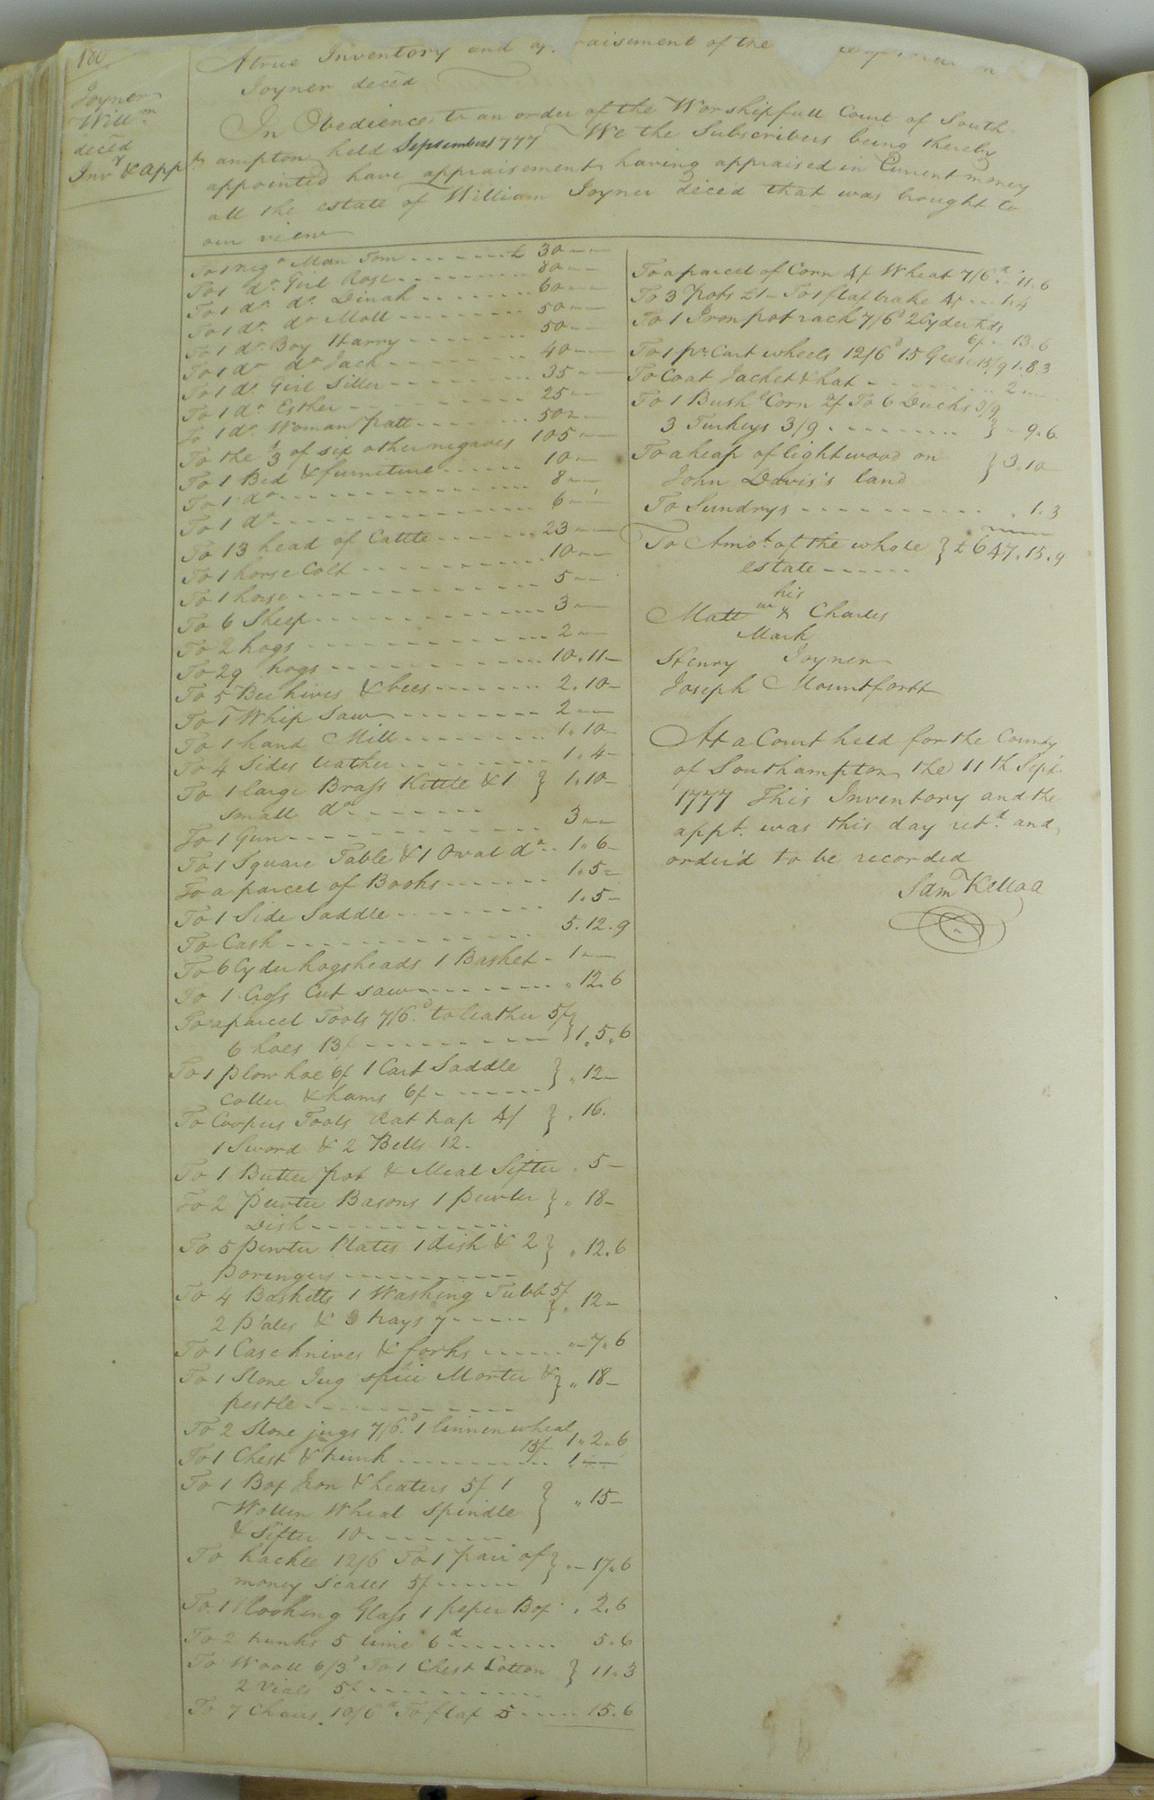 180
Joyner
Willm
deced
Invy & appt
A true Inventory and ap raisement of the
Joyner deced
In Obedience to an order of the Worshipfull Court of South
ampton held September 1777 We the Subscribers being thereby
appointed have appraisement having appraised in Current money
all the estate of William Joyner deced that was brought to
our view
To 1 nego Man Tom ------- £ 30 - -
To 1 do Girl Rose ------- 80 - -
To 1 do do Dinah ------- 60 - -
To 1 do do Moll ------- 50 - -
To 1 do Boy Harry ------- 50 - -
To 1 do do Jack ------- 40 - -
To 1 do Girl Siller ------- 35 - -
To 1 do Esther ------- 25 - -
To 1 do Woman patt ------- 50 - -
To the 1/3 of six other negroes 105 - -
To 1 Bed & furniture ------ 10 -
To 1 do ------- 8 - -
To 1 do ------- 6 - -
To 13 head of Cattle ------ 23 - -
To 1 horse Colt ------- 10 - -
To 1 horse ------- 5 - -
To 6 Sheep ------- 3 - -
To 2 hogs ------- 2 - -
To 29 hogs ------- 10.11 -
To 5 Bee hives & bees ------- 2.10 -
To 1 Whip Saw ------- 2 - -
To 1 hand Mill ------- 1.10 -
To 4 Sides leather ------- 1.4 -
To 1 large Brass Kittle & 1 } 1.10 -
small do -------
To 1 Gun ------- 3 - -
To 1 Square Table & 1 Oval do .. 1.6 -
To a parcel of Books ------- 1.5 -
To 1 Side Saddle ------- 1.5 -
To Cash ------- 5.12.9
To 6 Cyder hogsheads 1 Basket - 1 - -
To 1 Cross Cut saw ------- . 12.6
To a parcel Tools 7/6d to leather 5/
6 hoes 13/ ------- } 1.5.6
To 1 plow hoe 6/ 1 Cart Saddle } . 12 -
Coller & hams 6/ -------
To Coopers Tools Rat trap 4/ } . 16.
1 Sword & 2 Bells 12.
To 1 Butter pot & Meal Sifter . 5 -
To 2 Pewter Basons 1 pewter } . 18 -
Dish -------
To 5 pewter Plates 1 dish & 2 } . 12.6
poringers -------
To 4 Basketts 1 Washing Tubb 5/
2 Pales & 3 trays 7 ----- } . 12 -
To 1 Case knives & forks ------ . 7.6
To 1 Stone Jug spice Morter & } . 18 -
pestle -------
To 2 Stone jugs 7/6d 1 linnen wheal
15/ 1.2.6
To 1 Chest & trunk ------- 1 - -
To 1 Box Iron & heaters 5/ 1
Wollen Wheal Spindle } . 15 -
& Sifter 10 -------
To hackle 12/6 To 1 pair of } . 17.6
money Scales 5/ ------
To 1 looking Glass 1 peper Box . 2.6
To 2 trunks 5 lime 6d ------- 5.6
To Wooll 6/3d To 1 Chest Cotton } 11.3
2 Vials 5/ -------
To 7 Chairs 10/6d To flax 5 ----- 15.6
To a parcel of Corn 4/ Wheat 7/6d . 11.6
To 3 pots £1 - To 1 flax brake 4/ -- 1.4
To 1 Iron pot rach 7/6d 2 Cyder hds
6/ - 13.6
To 1 pr Cart wheels 12/6d 15 Geese 15/9 1.8.3
To Coat Jacket & hat ------- 2 - -
To 1 Bushl Corn 2/ To 6 Ducks 3/9
3 Turkeys 3/9 ------- } - 9.6
To a heap of lightwood on } 3.10 -
John Davis's land
To Sundrys ------- . 1.3
To Amot of the whole } £647.15.9
estate ------
his
Matt w X Charles
Mark
Henry Joyner
Joseph Mountfortt
At a Court held for the County
of Southampton the 11th Sept.
1777 This Inventory and the
appt. was this day retd. and
order'd to be recorded
Sam Kello